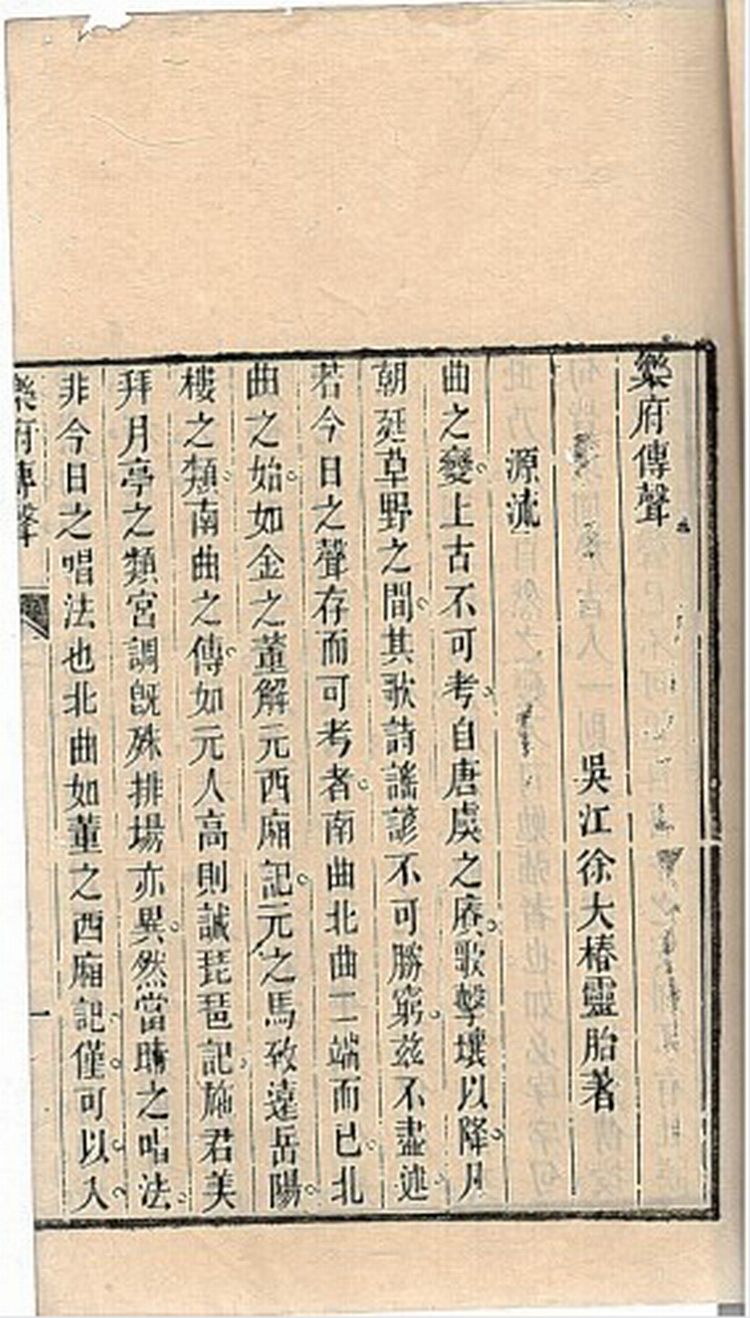 樂府傳聲
吳江徐大椿靈胎著
源流
曲之變上古不可考自唐虞之賡歌擊壤以降凡
朝廷草野之間其歌詩謠諺不可勝窮茲不盡述
若今日之聲存而可考者南曲北曲二端而已北
曲之始如金之董解元西廂記元之馬致遠岳陽
樓之類南曲之傳如元人高則誠琵琶記施君美
拜月亭之類宮調旣殊排場亦異然當時之唱法
非今日之唱法也北曲如董之西廂記僅可以入
樂府傳聲
一